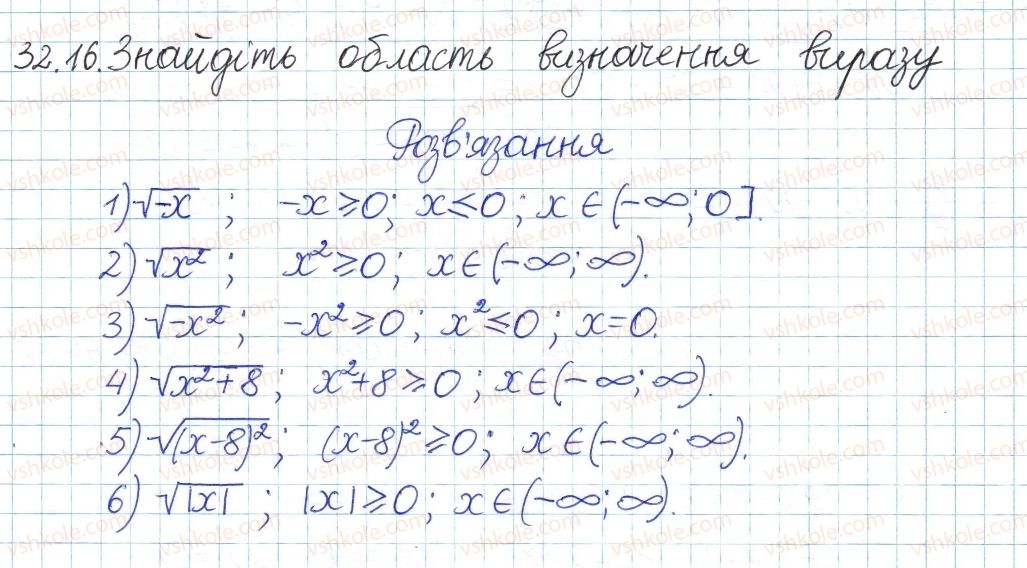 32.16. Знайдіть область визначення виразу
Розв'язання
1) √-x ; -x ≥ 0; x ≤ 0; x ∈ (-∞; 0].
2) √x² ; x² ≥ 0; x ∈ (-∞; ∞).
3) √-x² ; -x² ≥ 0; x² ≤ 0; x = 0.
4) √x²+8 ; x²+8 ≥ 0; x ∈ (-∞; ∞).
5) √(x-8)² ; (x-8)² ≥ 0; x ∈ (-∞; ∞).
6) √|x| ; |x| ≥ 0; x ∈ (-∞; ∞).